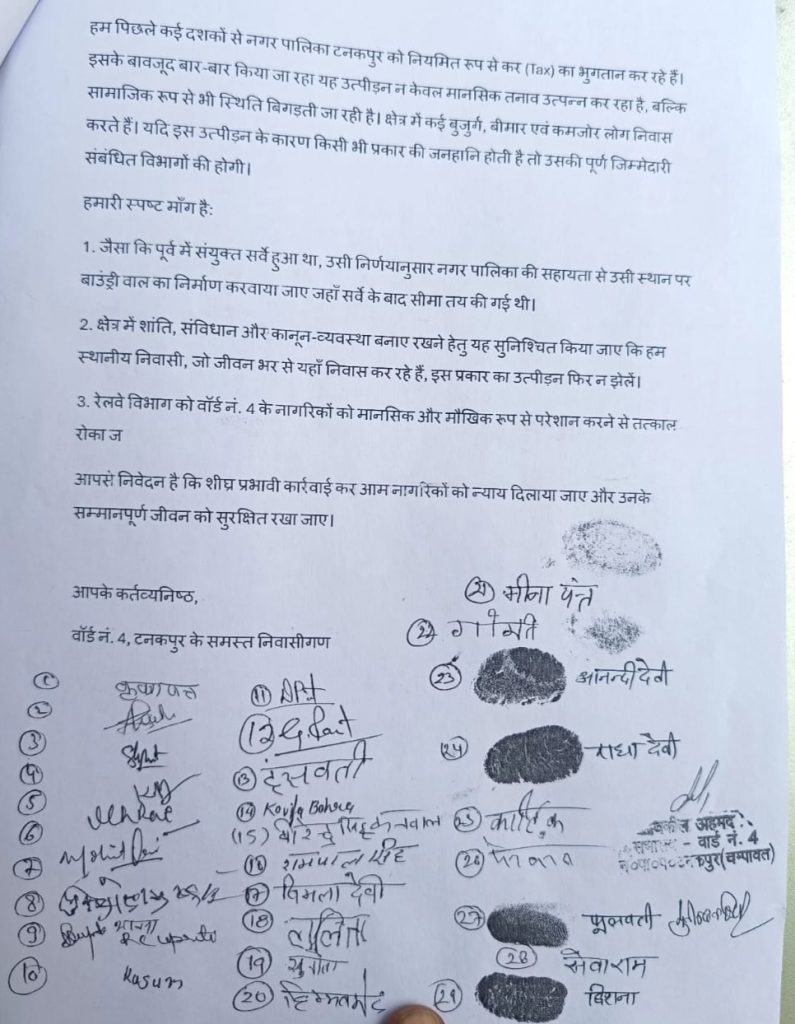 हम पिछले कई दशकों से नगर पालिका टनकपुर को नियमित रूप से कर (Tax) का भुगतान कर रहे हैं।
इसके बावजूद बार-बार किया जा रहा यह उत्पीड़न न केवल मानसिक तनाव उत्पन्न कर रहा है, बल्कि
सामाजिक रूप से भी स्थिति बिगड़ती जा रही है। क्षेत्र में कई बुजुर्ग, बीमार एवं कमजोर लोग निवास
करते हैं। यदि इस उत्पीड़न के कारण किसी भी प्रकार की जनहानि होती है तो उसकी पूर्ण जिम्मेदारी
संबंधित विभागों की होगी।
हमारी स्पष्ट माँग है:
1. जैसा कि पूर्व में संयुक्त सर्वे हुआ था, उसी निर्णयानुसार नगर पालिका की सहायता से उसी स्थान पर
बाउंड्री वाल का निर्माण करवाया जाए जहाँ सर्वे के बाद सीमा तय की गई थी।
2. क्षेत्र में शांति, संविधान और कानून-व्यवस्था बनाए रखने हेतु यह सुनिश्चित किया जाए कि हम
स्थानीय निवासी, जो जीवन भर से यहाँ निवास कर रहे हैं, इस प्रकार का उत्पीड़न फिर न झेलें।
3. रेलवे विभाग को वॉर्ड नं. 4 के नागरिकों को मानसिक और मौखिक रूप से परेशान करने से तत्काल
रोका ज
आपसे निवेदन है कि शीघ्र प्रभावी कार्रवाई कर आम नागरिकों को न्याय दिलाया जाए और उनके
सम्मानपूर्ण जीवन को सुरक्षित रखा जाए।
आपके कर्तव्यनिष्ठ,
वॉर्ड नं. 4, टनकपुर के समस्त निवासीगण
1
2
3
4
5
6
7
8
9
10 Kasum
11
12
13 हंसवती
14 Bohra
(15)
16 रामपाल सिंह
17 विमला देवी
18 ललिता
19 सुनीता
20
21 मीना पंत
22 गोमती
23 आनन्दी देवी
24 राधा देवी
25 कार्तिक
26
27 फूलवती
28 सेवाराम
29
वकील अहमद
सभासद - वार्ड नं. 4
न०पा०प० टनकपुर (चम्पावत)